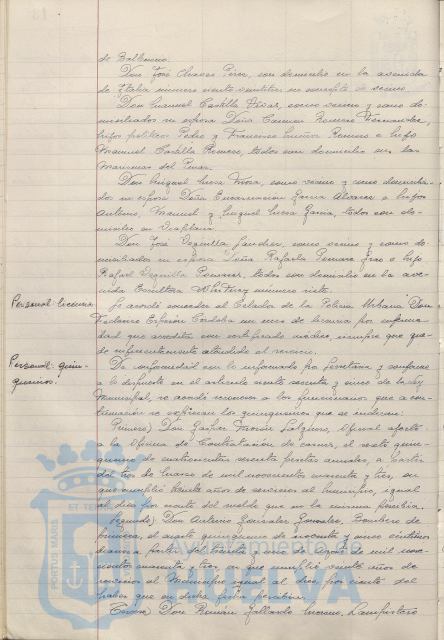 de Balbueno.
Don José Chaves Pérez, con domicilio en la avenida
de Italia número ciento veintitres en concepto de vecino.
Don Manuel Castilla Vivas, como vecino y como do-
miciliados su esposa Doña Carmen Romero Fernández,
hijos políticos Pedro y Francisco Muñoz Romero e hijo
Manuel Castilla Romero, todos con domicilio en las
Marismas del Pinar.
Don Miguel Mora Mora, como vecino y como domicilia-
dos su esposa Doña Encarnacion Garcia Alvarez e hijos
Antonio, Manuel y Miguel Mora Garcia, todos con do-
micilio en
Don José Vizquilla Sanchez, como vecino y como do-
miciliados su esposa Doña Rafaela Romero e hijo
Rafael Vizquilla Romero, todos con domicilio en la ave-
nida Escultora Whitney número siete.
Personal: licencia. Se acordó conceder al Celador de la Policia Urbana Don
Federico Espinosa Cordoba un mes de licencia por enferme-
dad que acredita con certificado médico, siempre que que-
de suficientemente atendido el servicio.
Personal: quin-
quenios.
De conformidad con lo informado por Secretaria y conforme
a lo dispuesto en el articulo ciento sesenta y cinco de la Ley
Municipal, se acordó reconocer a los funcionarios que a con-
tinuación se expresan los quinquenios que se indican:
Primero) Don Gaspar Morón Salguero, Oficial afecto
a la Oficina de Contratación de carnes, el sexto quin-
quenio de cuatrocientas sesenta pesetas anuales, a partir
del tres de Marzo de mil novecientos cuarenta y tres, en
que cumplió treinta años de servicios al Municipio, igual
al diez por ciento del sueldo que en la misma percibia.
Segundo) Don Antonio Gonzalez Gonzalez, Bombero de
primera, el cuarto quinquenio de noventa y cinco céntimos
diarios a partir del treinta y uno de Agosto de mil nove-
cientos cuarenta y tres, en que cumplió veinte años de
servicios al Municipio igual al diez por ciento del
haber que en dicha fecha percibia.
Tercero) Don Ramón Gallardo Moreno, Lampistero
PORTUS MARIS ET TERRAE
Ayuntamiento de
HUELVA